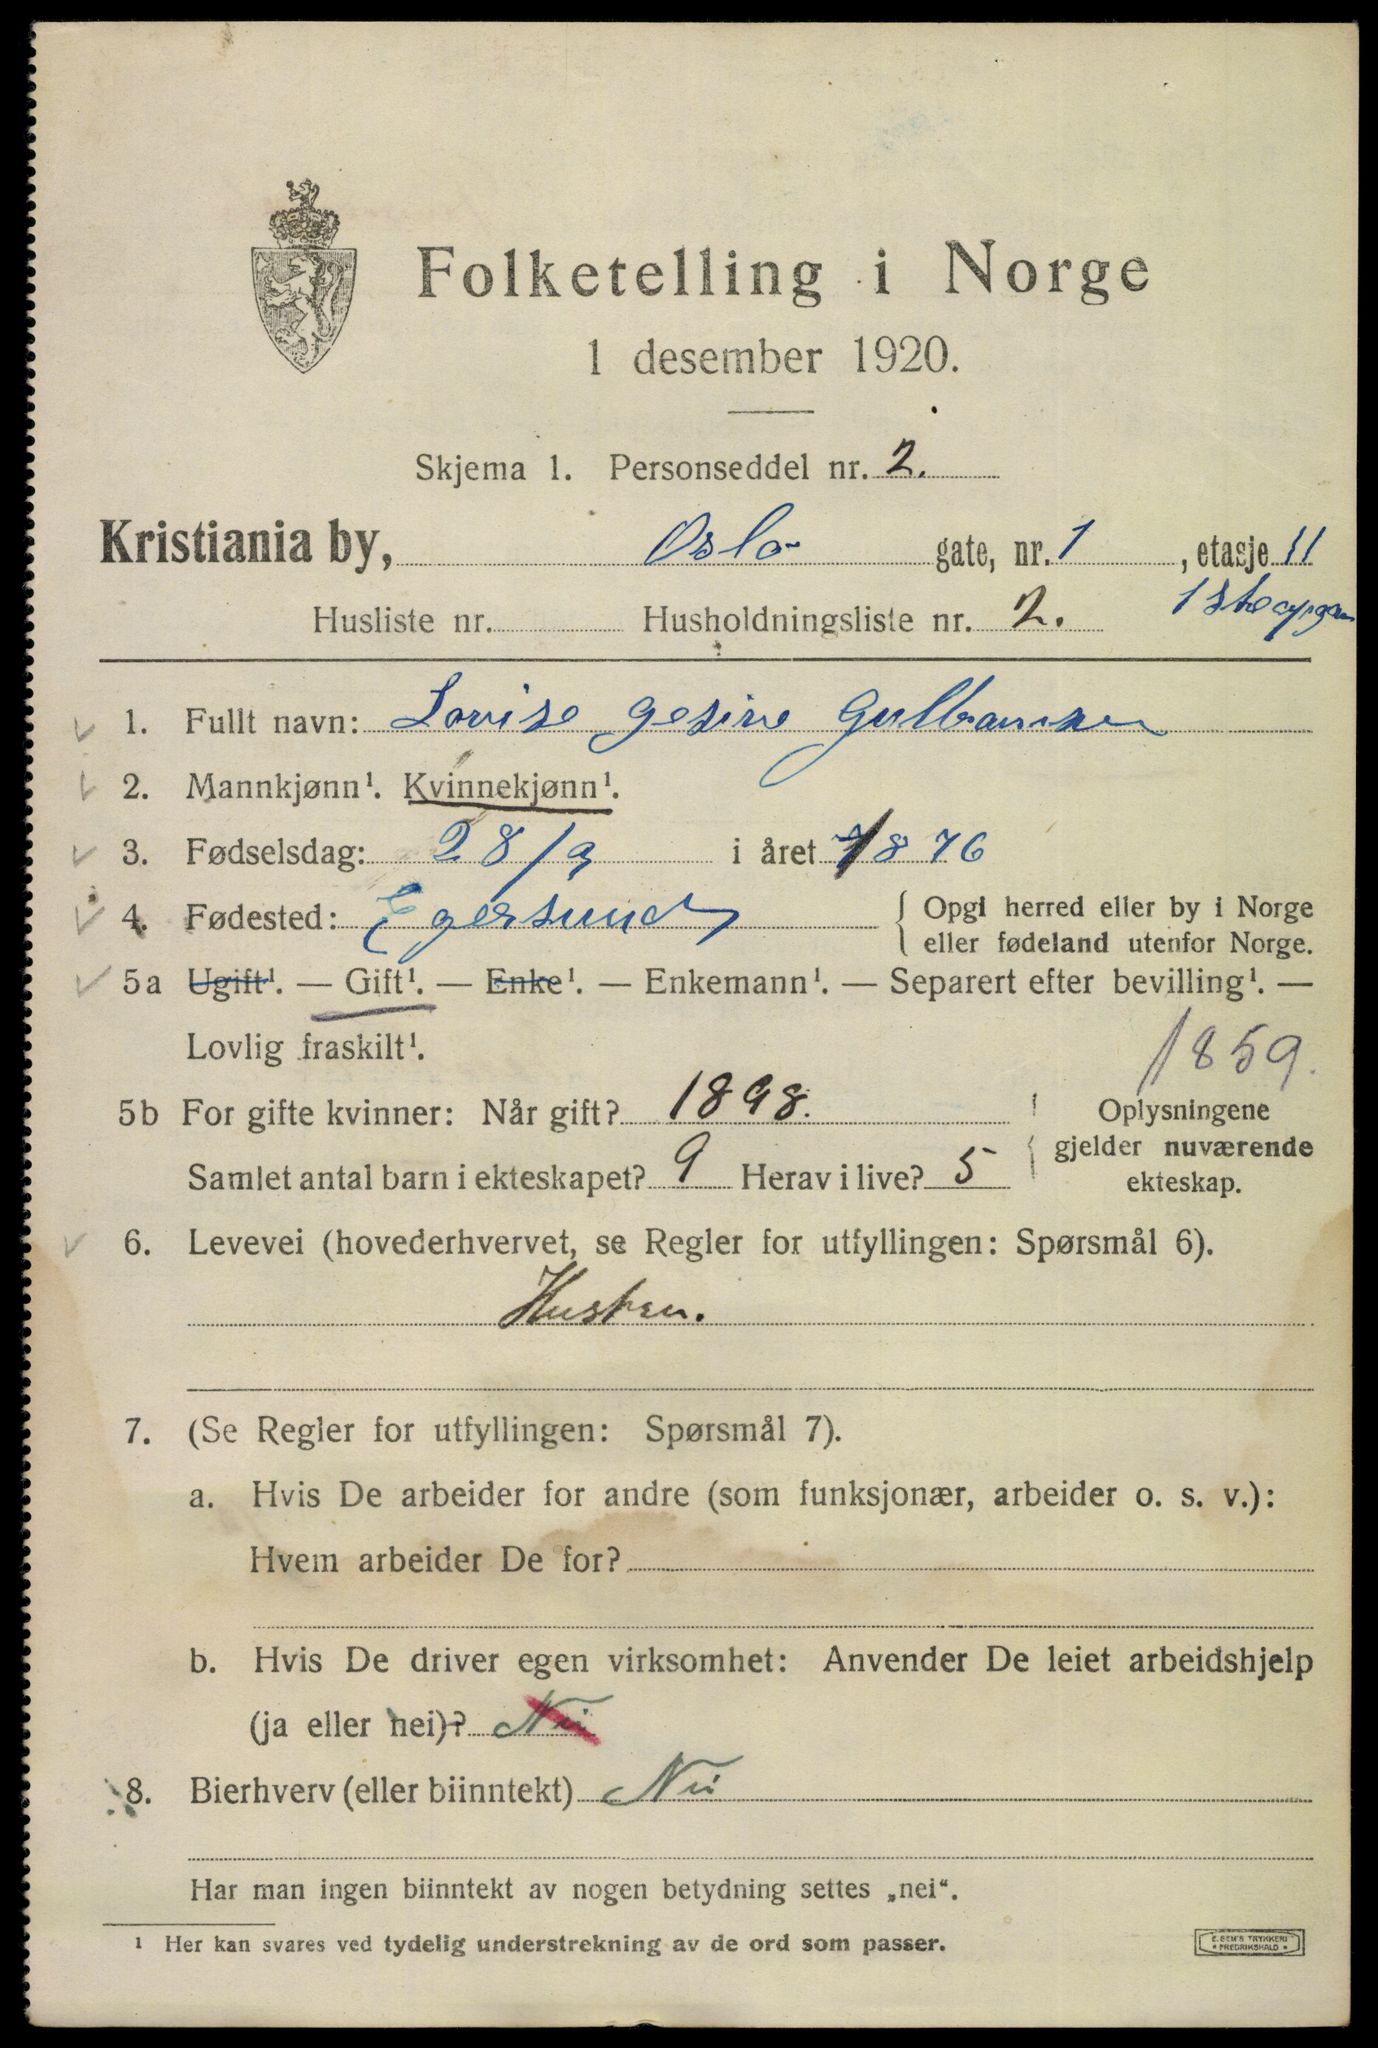 Folketelling i Norge
1 desember 1920.
Skjema 1. Personseddel nr. 2.
Kristiania by, Oslo gate, nr. 1, etasje 11
Husliste nr. Husholdningsliste nr. 2. 1ste opgan
1. Fullt navn: Lovise Gesine Gulbransen
2. Mannkjønn¹. Kvinnekjønn¹.
3. Fødselsdag: 28/9 i året 1876
4. Fødested: Egersund { Opgi herred eller by i Norge
eller fødeland utenfor Norge.
5a Ugift¹. — Gift¹. — Enke¹. — Enkemann¹. — Separert efter bevilling¹. —
Lovlig fraskilt¹.
1859.
5b For gifte kvinner: Når gift? 1898. Oplysningene
gjelder nuværende
Samlet antal barn i ekteskapet? 9 Herav i live? 5 ekteskap.
6. Levevei (hovederhvervet, se Regler for utfyllingen: Spørsmål 6).
Hustru.
7. (Se Regler for utfyllingen: Spørsmål 7).
a. Hvis De arbeider for andre (som funksjonær, arbeider o. s. v.):
Hvem arbeider De for?
b. Hvis De driver egen virksomhet: Anvender De leiet arbeidshjelp
(ja eller nei)? Nei
8. Bierhverv (eller biinntekt) Nei
Har man ingen biinntekt av nogen betydning settes „nei“.
¹ Her kan svares ved tydelig understrekning av de ord som passer.
E. SEM'S TRYKKERI
* FREDRIKSHALD *